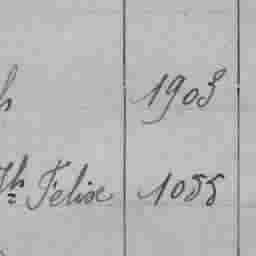 1903
Th Felix 1055